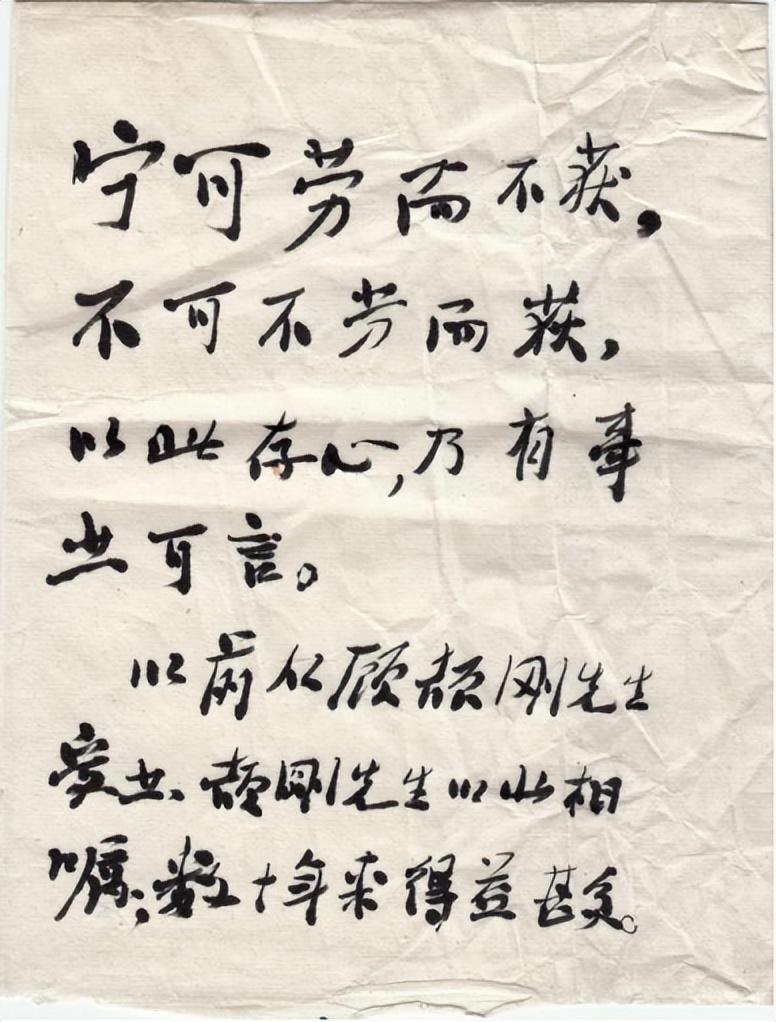 宁可劳而不获，
不可不劳而获，
以此存心，乃有事
业可言。
以前从顾颉刚先生
受业、颉刚先生以此相
嘱，数十年来得益甚多。